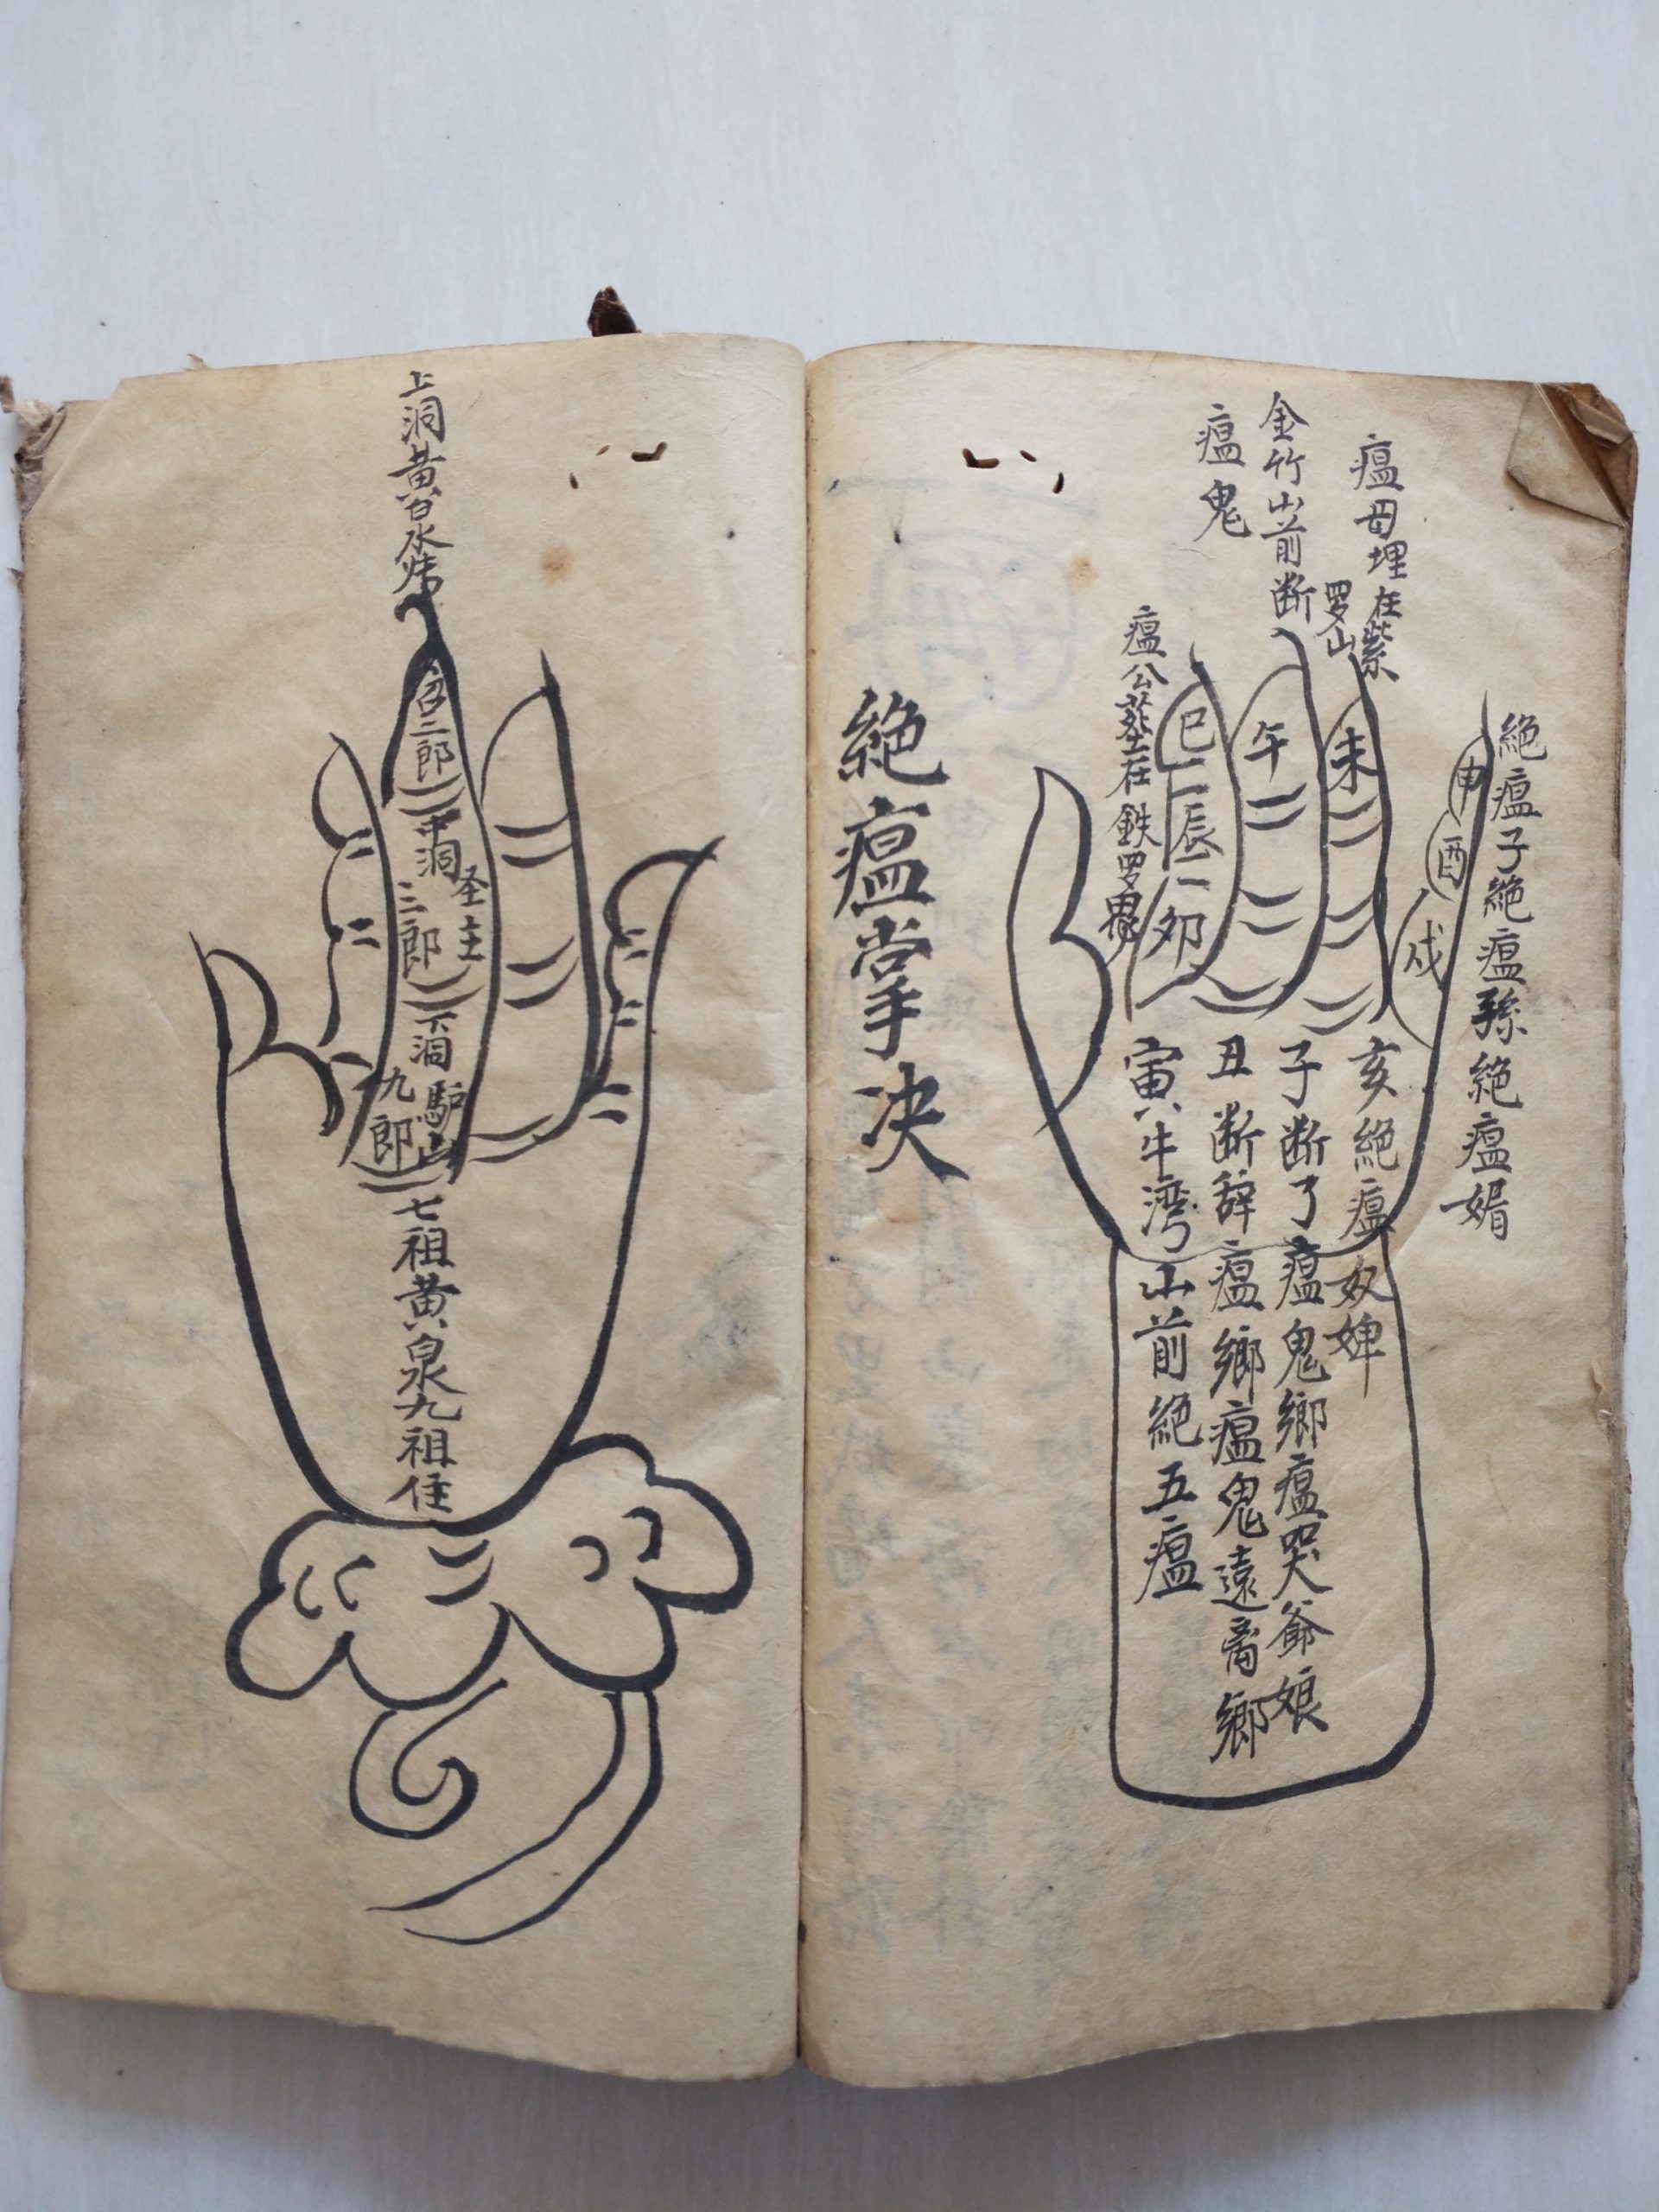 絕瘟子絕瘟孫絕瘟媳
瘟母埋在紫
罗山
金竹山前断
瘟鬼
瘟公葬在鉄罗
申
酉
戌
未
午
巳
辰
卯
亥絕瘟奴婢
子断了瘟鬼鄉瘟哭爺娘
丑断辞瘟鄉瘟鬼遠离鄉
寅八牛湾山前絕五瘟
絕瘟掌决
上洞黄
二郎
中洞
圣主
三郎
下洞
驴山
九郎
七祖黄泉九祖住